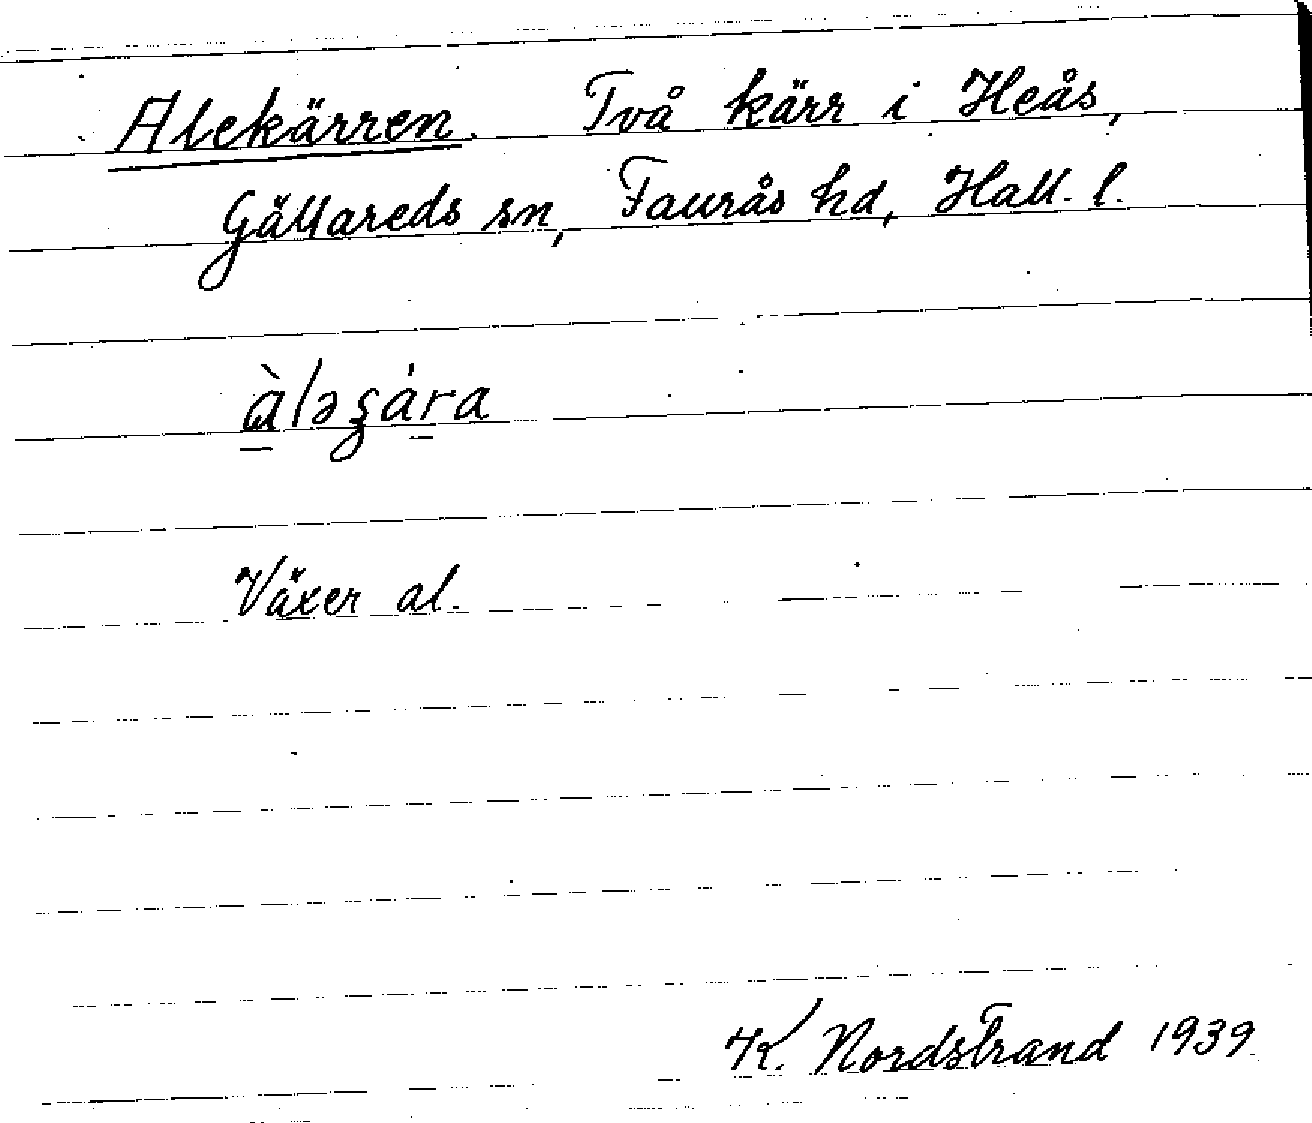 Alekärren. Två kärr i Heås,
Gällareds sn, Faurås hd, Hall. l.
àləʂára
Växer al.
K. Nordstrand 1939